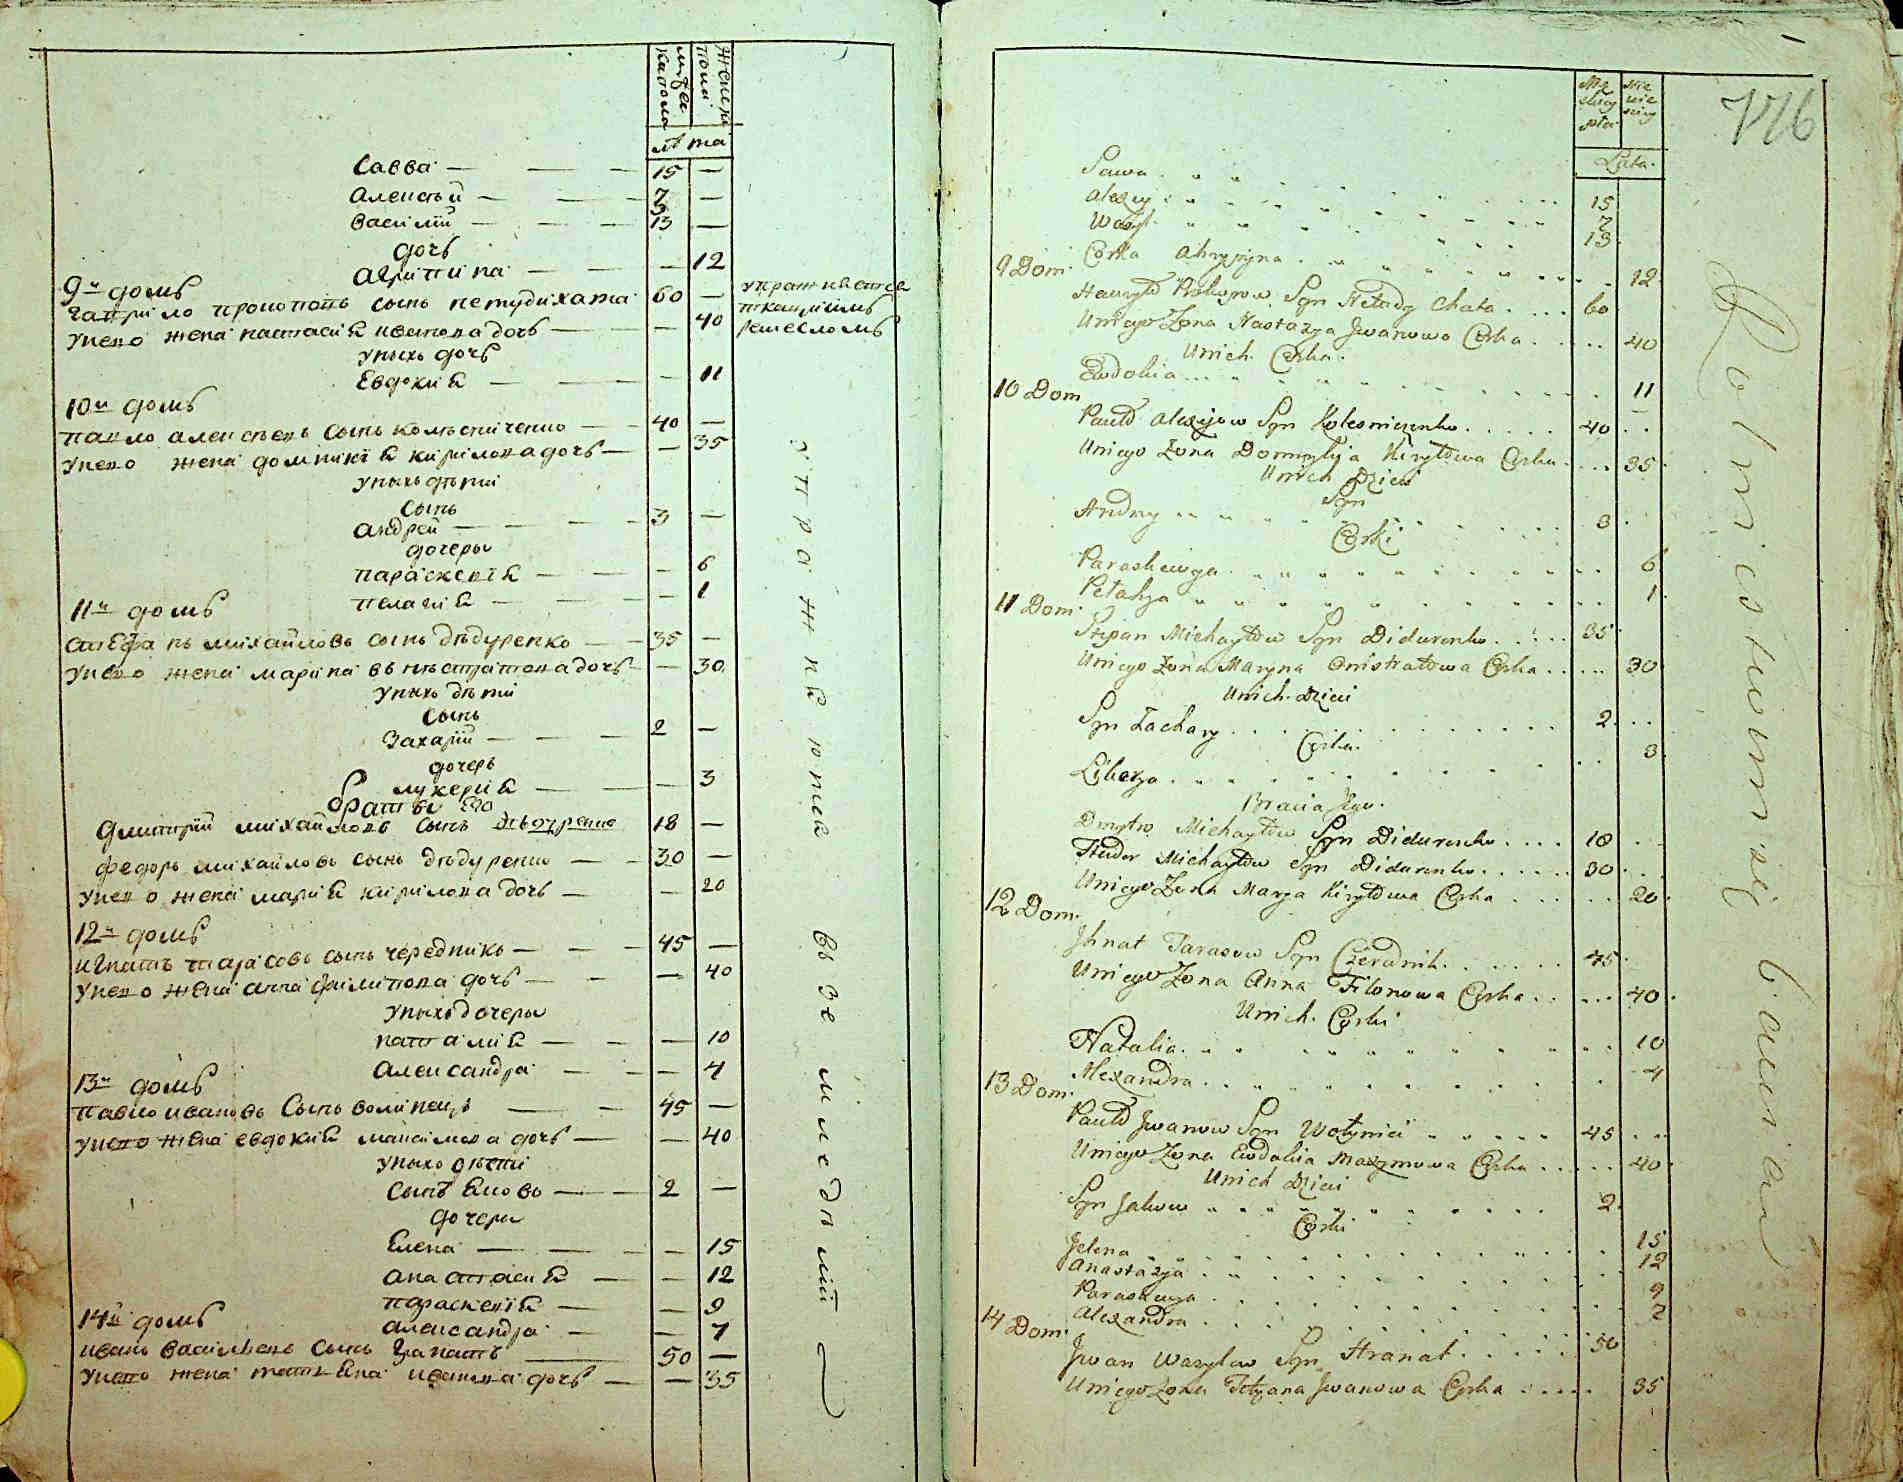 мужеска пола
женска пола
лѣта
Савва — — — 15 —
Алексѣй — — 7 —
Василій — — — 13 —
дочь
Агрипина — — — 12
9й домъ
Гаврило Прокоповъ сынъ Нетудихата 60 —
упражняется
ткацкимъ
ремесломъ
у него жена Настасія Иванова дочь — — 40
у ныхъ дочь
Евдокия — — — 11
10й домъ
Павло Алексѣевъ сынъ Колѣсниченко — 40 —
у него жена Домникія Кирилова дочь — — 35
у ныхъ дѣти
сынъ
Андрей — — — 3 —
дочеры
Параскевія — — — 6
Пелагія — — — 1
11й домъ
Стефанъ Михайловъ сынъ Дѣдуренко — 35 —
у него жена Марина Внѣстратова дочь — — 30
у ныхъ дѣти
сынъ
Захарій — — — 2 —
дочерь
Лукерія — — — 3
братья его
Дмитрій Михайловъ сынъ Дѣдуренко 18 —
Федоръ Михайловъ сынъ Дѣдуренко — 30 —
у него жена Марія Кирилова дочь — — 20
12й домъ
Игнатъ Тарасовъ сынъ Чередникъ — — 45 —
у него жена Анна Филипова дочь — — — 40
у ныхъ дочеры
Наталія — — — 10
Александра — — — 4
13й домъ
Павло Ивановъ сынъ Волинецъ — — 45 —
у него жена Евдокия Максимова дочь — — 40
у ныхъ дѣти
сынъ Яковъ — — 2 —
дочеры
Елена — — — 15
Анастасия — — 12
Параскевія — — 9
Александра — — 7
14й домъ
Иванъ Васильевъ сынъ Гранатъ — 50 —
у него жена Татьяна Иванова дочь — — 35
упражняются въ земледѣлій
Męskiej płci
Lata
176
Sawa . . . . . 15
Alexy . . . . . 7
Wasyl . . . . . 13
Corka Ahrypyna . . . . . 12
9 Dom.
Hawryło Prokopow Syn Netudy Chata . . . . 60
U niego Żona Nastazya Jwanowa Corka . . . . 40
U nich Corka.
Ewdokia . . . . . 11
10 Dom
Pawło Alexijow Syn Kolesniczenko . . . . . 40
U niego Żona Domnykija Kiryłowa Corka . . . . 35
U nich Dzieci
Syn
Andrzy . . . . . 3
Corki
Paraskewya . . . . . 6
Pelahya . . . . . 1
11 Dom.
Stepan Michayłow Syn Didurenko . . . . 35
U niego Żona Maryna Onistratowa Corka . . . . 30
U nich Dzieci
Syn Zachary . . . . . 2
Corka.
. . . . . 3
Bracia Jego.
Dmytro Michayłow Syn Didurenko . . . . 18
Fedor Michayłow Syn Didurenko . . . . . 30
U niego Żona Marya Kiryłowa Corka . . . . . 20
12 Dom.
Jhnat Tarasow Syn Czerednik . . . . . . 45
U niego Żona Anna Filonowa Corka . . . . . 40
U nich Corki
Natalia . . . . . 10
Alexandra . . . . . 4
13 Dom.
Pawło Jwanow Syn Wołyniec . . . . . 45
U niego Żona Ewdokia Maxymowa Corka . . . . . 40
U nich Dzieci
Syn Jakow . . . . . 2
Corki
Jelena . . . . . 15
Anastazya . . . . . 12
Paraskewya . . . . . 9
Alexandra . . . . . 7
14 Dom.
Jwan Wasylow Syn Hranat . . . . . 50
U niego Żona Tetyana Jwanowa Corka . . . . . 35